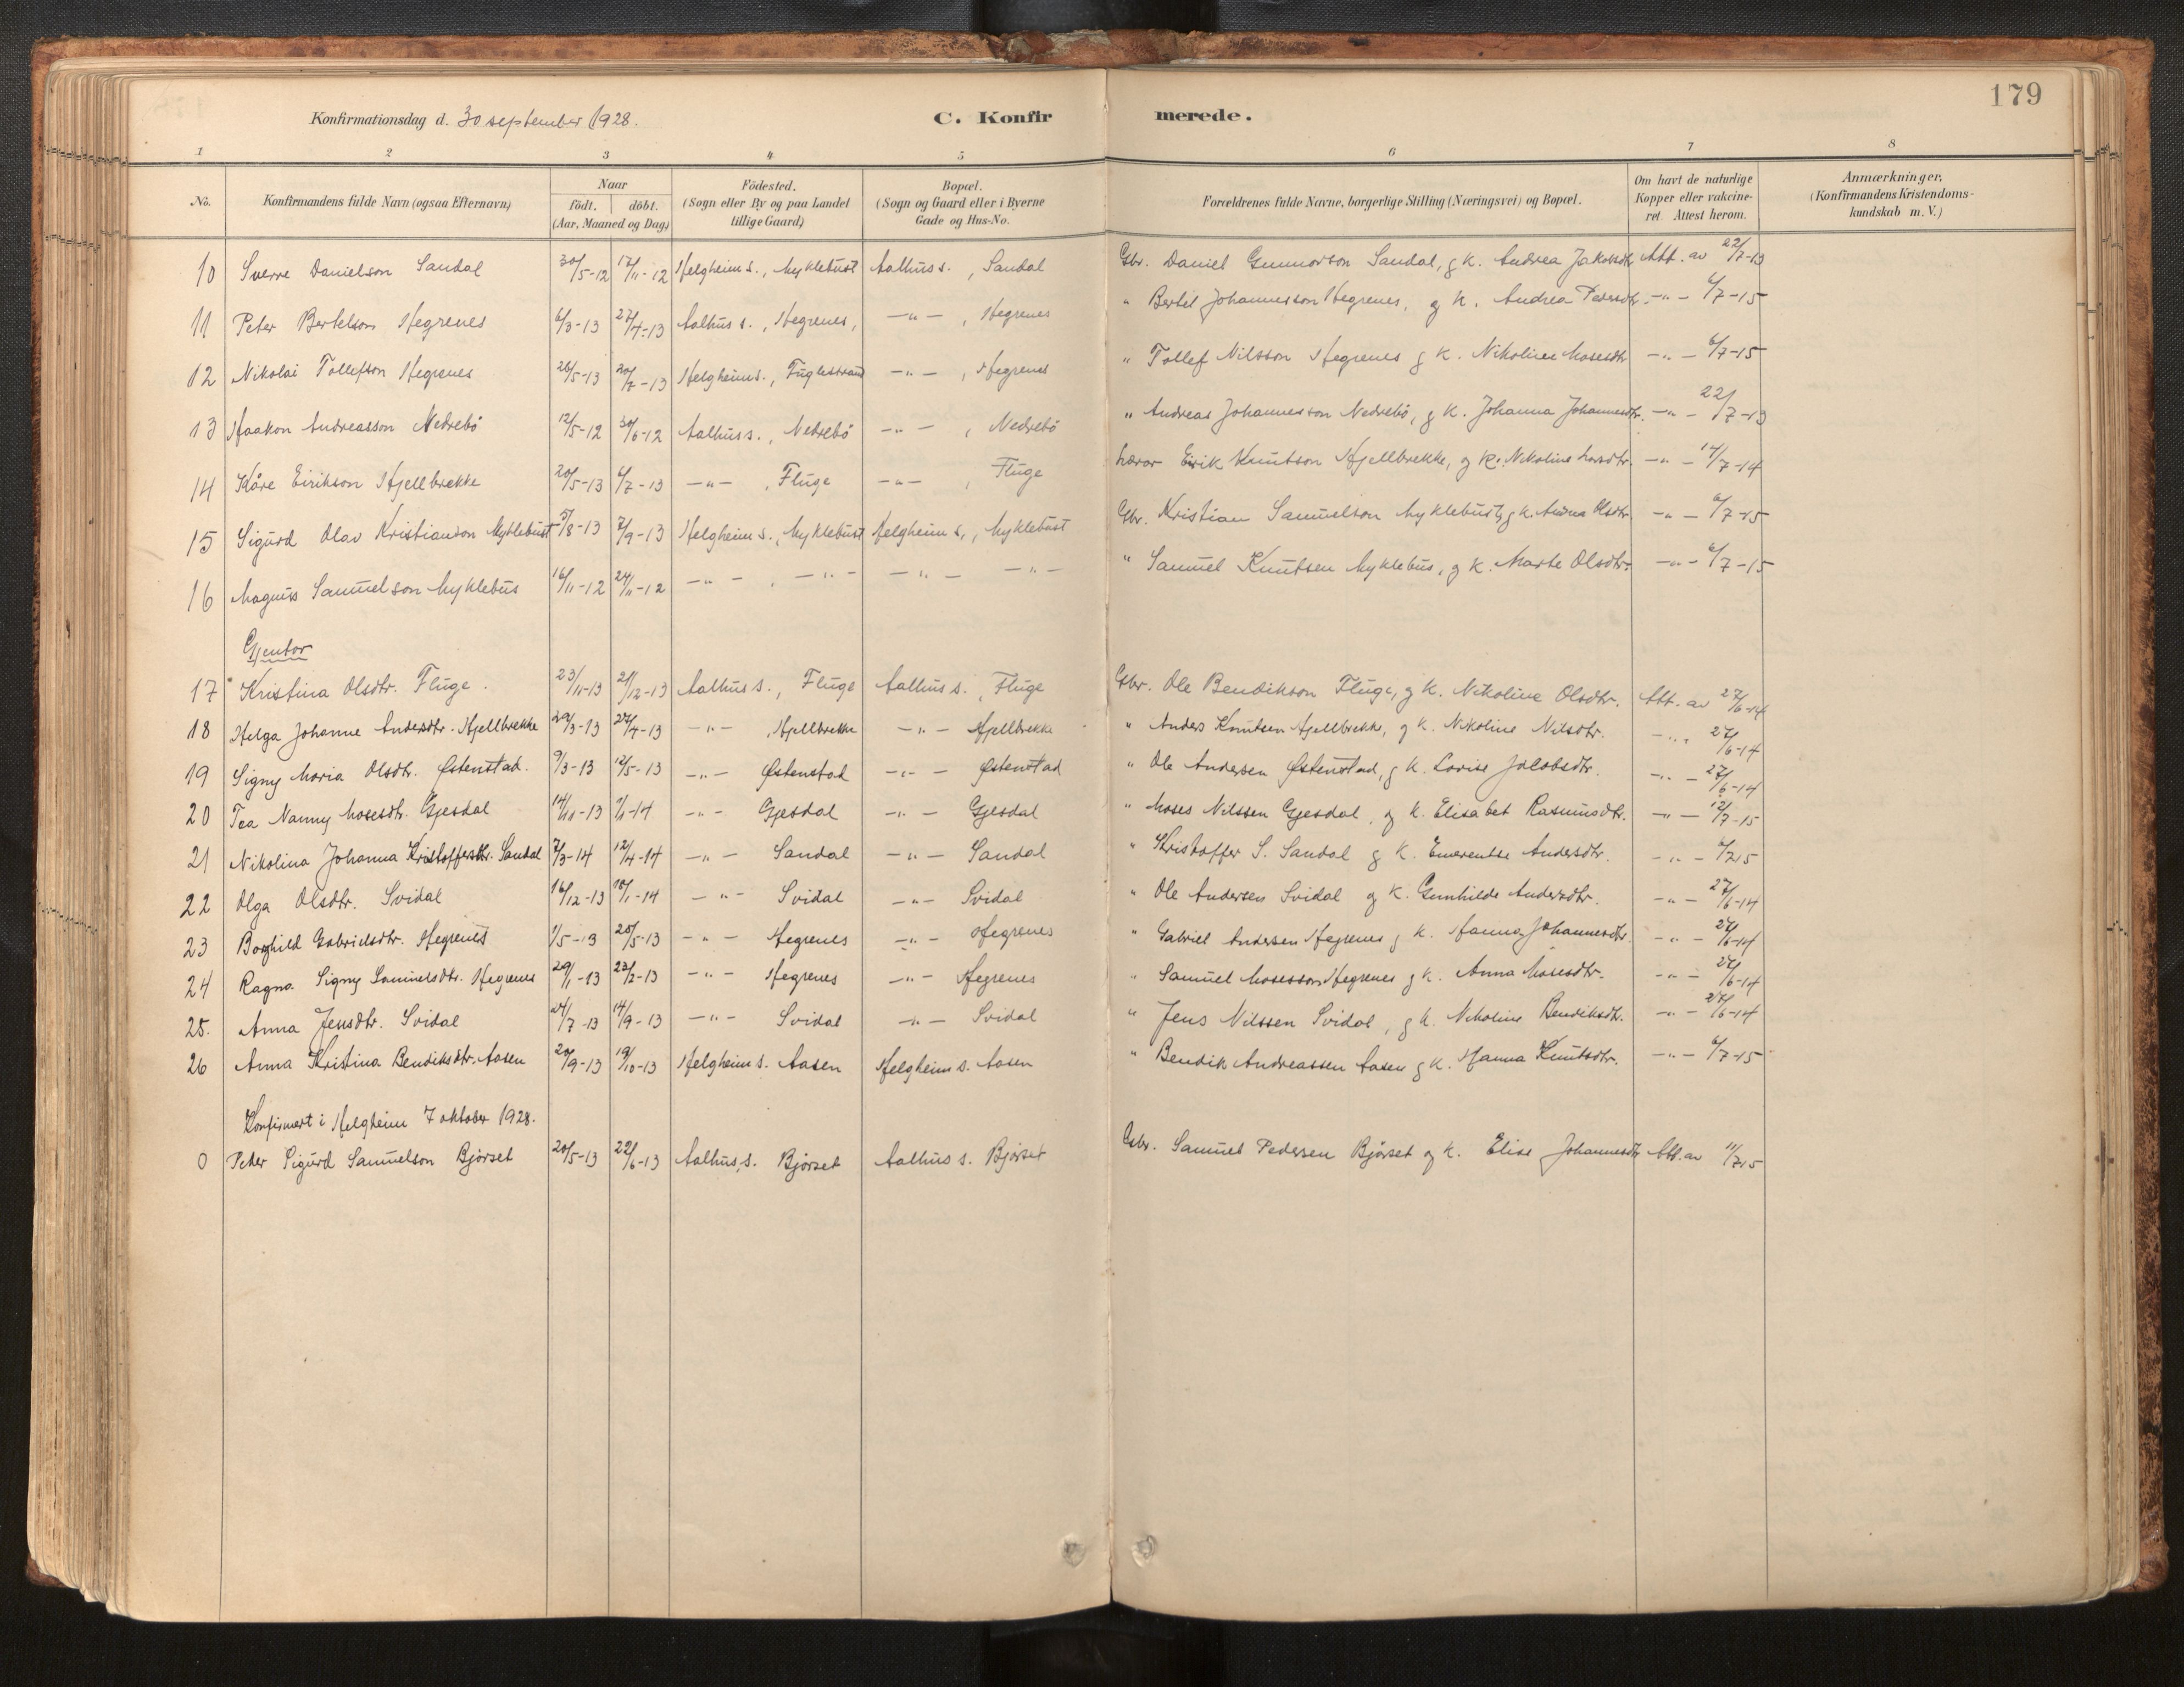 179
Konfirmationsdag d. 30 september 1928.
C. Konfirmerede.
1 2 3 4 5 6 7 8
No. | Konfirmandens fulde Navn (ogsaa Efternavn) | Naar födt. döbt. (Aar, Maaned og Dag) | Födested. (Sogn eller By og paa Landet tillige Gaard) | Bopæl. (Sogn og Gaard eller i Byerne Gade og Hus-No. | Forældrenes fulde Navne, borgerlige Stilling (Næringsvei) og Bopæl. | Om havt de naturlige Kopper eller vakcineret. Attest herom. | Anmærkninger. (Konfirmandens Kristendomskundskab m. V.)
10 Sverre Danielson Sandal 30/5-12 17/11-12 Helgheim s., Myklebust Aalhus s., Sandal Gbr. Daniel Gunnarson Sandal, g k. Andrea Jakobsdtr. Att. av 22/7-13
11 Peter Bertelson Hegrenes 6/3-13 27/4-13 Aalhus s., Hegrenes, -"- , Hegrenes " Bertel Johannesson Hegrenes, og k. Andrea Pedersdtr. -"- 6/7-15
12 Nikolai Tollefson Hegrenes 26/5-13 20/7-13 Helgheim s., Fuglestrand -"- , Hegrenes " Tollef Nilsson Hegrenes g k. Nikoline Mosesdtr -"- 6/7-15
13 Haakon Andreasson Nedrebö 12/5-12 30/6-12 Aalhus s., Nedrebö -"- , Nedrebö " Andreas Johannesson Nedrebö, g k. Johanna Johannesdtr. -"- 22/7-13
14 Kåre Eirikson Hjellbrekke 20/5-13 6/7-13 -"- , Fluge -"- , Fluge Lærar Eirik Knutson Hjellbrekke, og k. Nikoline Larsdtr. -"- 14/7-14
15 Sigurd Olav Kristianson Myklebust /8-13 7/9-13 Helgheim s., Myklebust Helgheim s., Myklebust Gbr. Kristian Samuelson Myklebust, g k. Olsdtr. -"- 6/7-15
16 Magnus Samuelson Myklebus 16/11-12 24/11-12 -"- , -"- -"- -"- " Samuel Knutsen Myklebus, g k. Marte Olsdtr. -"- 6/7-15
Gjentor
17 Kristina Olsdtr. Fluge. 23/11-13 21/12-13 Aalhus s., Fluge Aalhus s., Fluge Gbr. Ole Bendikson Fluge, g k. Nikoline Olsdtr. Att. av 27/6-14
18 Helga Johanne Andersdtr. Hjellbrekke 29/3-13 27/4-13 -"- , Hjellbrekke -"- Hjellbrekke " Anders Knutsen Hjellbrekke, g k. Nikoline Nilsdtr. -"- 27/6-14
19 Signy Maria Olsdtr. Østenstad. 9/3-13 12/5-13 -"- Østenstad -"- Østenstad " Ole Andersen Østenstad, g k. Lovise Jacobsdtr. -"- 27/6-14
20 Tea Nanny Mosesdtr. Gjesdal 14/11-13 1/1-14 -"- Gjesdal -"- Gjesdal " Moses Nilssen Gjesdal, og k. Elisabet Rasmusdtr. -"- 12/7-15
21 Nikolina Johanna Kristoffersdtr. Sandal 7/3-14 12/4-14 -"- Sandal -"- Sandal " Kristoffer S. Sandal g k. Emerentse Andersdtr. -"- 6/7-15
22 Olga Olsdtr. Svidal 16/12-13 18/1-14 -"- Svidal -"- Svidal " Ole Andersen Svidal og k. Gunhilde Andersdtr. -"- 27/6-14
23 Borghild Gabrielsdtr. Hegrenes 1/5-13 25/5-13 -"- Hegrenes -"- Hegrenes " Gabriel Andersen Hegrenes g k. Hanna Johannesdtr. -"- 27/6-14
24 Ragna Signy Samuelsdtr. Hegrenes 29/1-13 23/2-13 -"- Hegrenes -"- Hegrenes " Samuel Mosesson Hegrenes g k. Anna Mosesdtr. -"- 27/6-14
25. Anna Jensdtr. Svidal 24/7-13 14/9-13 -"- Svidal -"- Svidal " Jens Nilssen Svidal, g k. Nikoline Bendiksdtr. -"- 27/6-14
26 Anna Kristina Bendiksdtr. Aasen 20/9-13 19/10-13 Helgheim s. Aasen Helgheim s. Aasen " Bendik Andreassen Aasen g k. Hanna Knutsdtr. -"- 6/7-15
Konfirmert i Helgheim 7 oktober 1928.
0 Peter Sigurd Samuelson Bjørset 20/5-13 22/6-13 Aalhus s. Bjørset Aalhus s. Bjørset Gbr. Samuel Pedersen Bjørset og k. Elise Johannesdtr Att. av 11/7-15